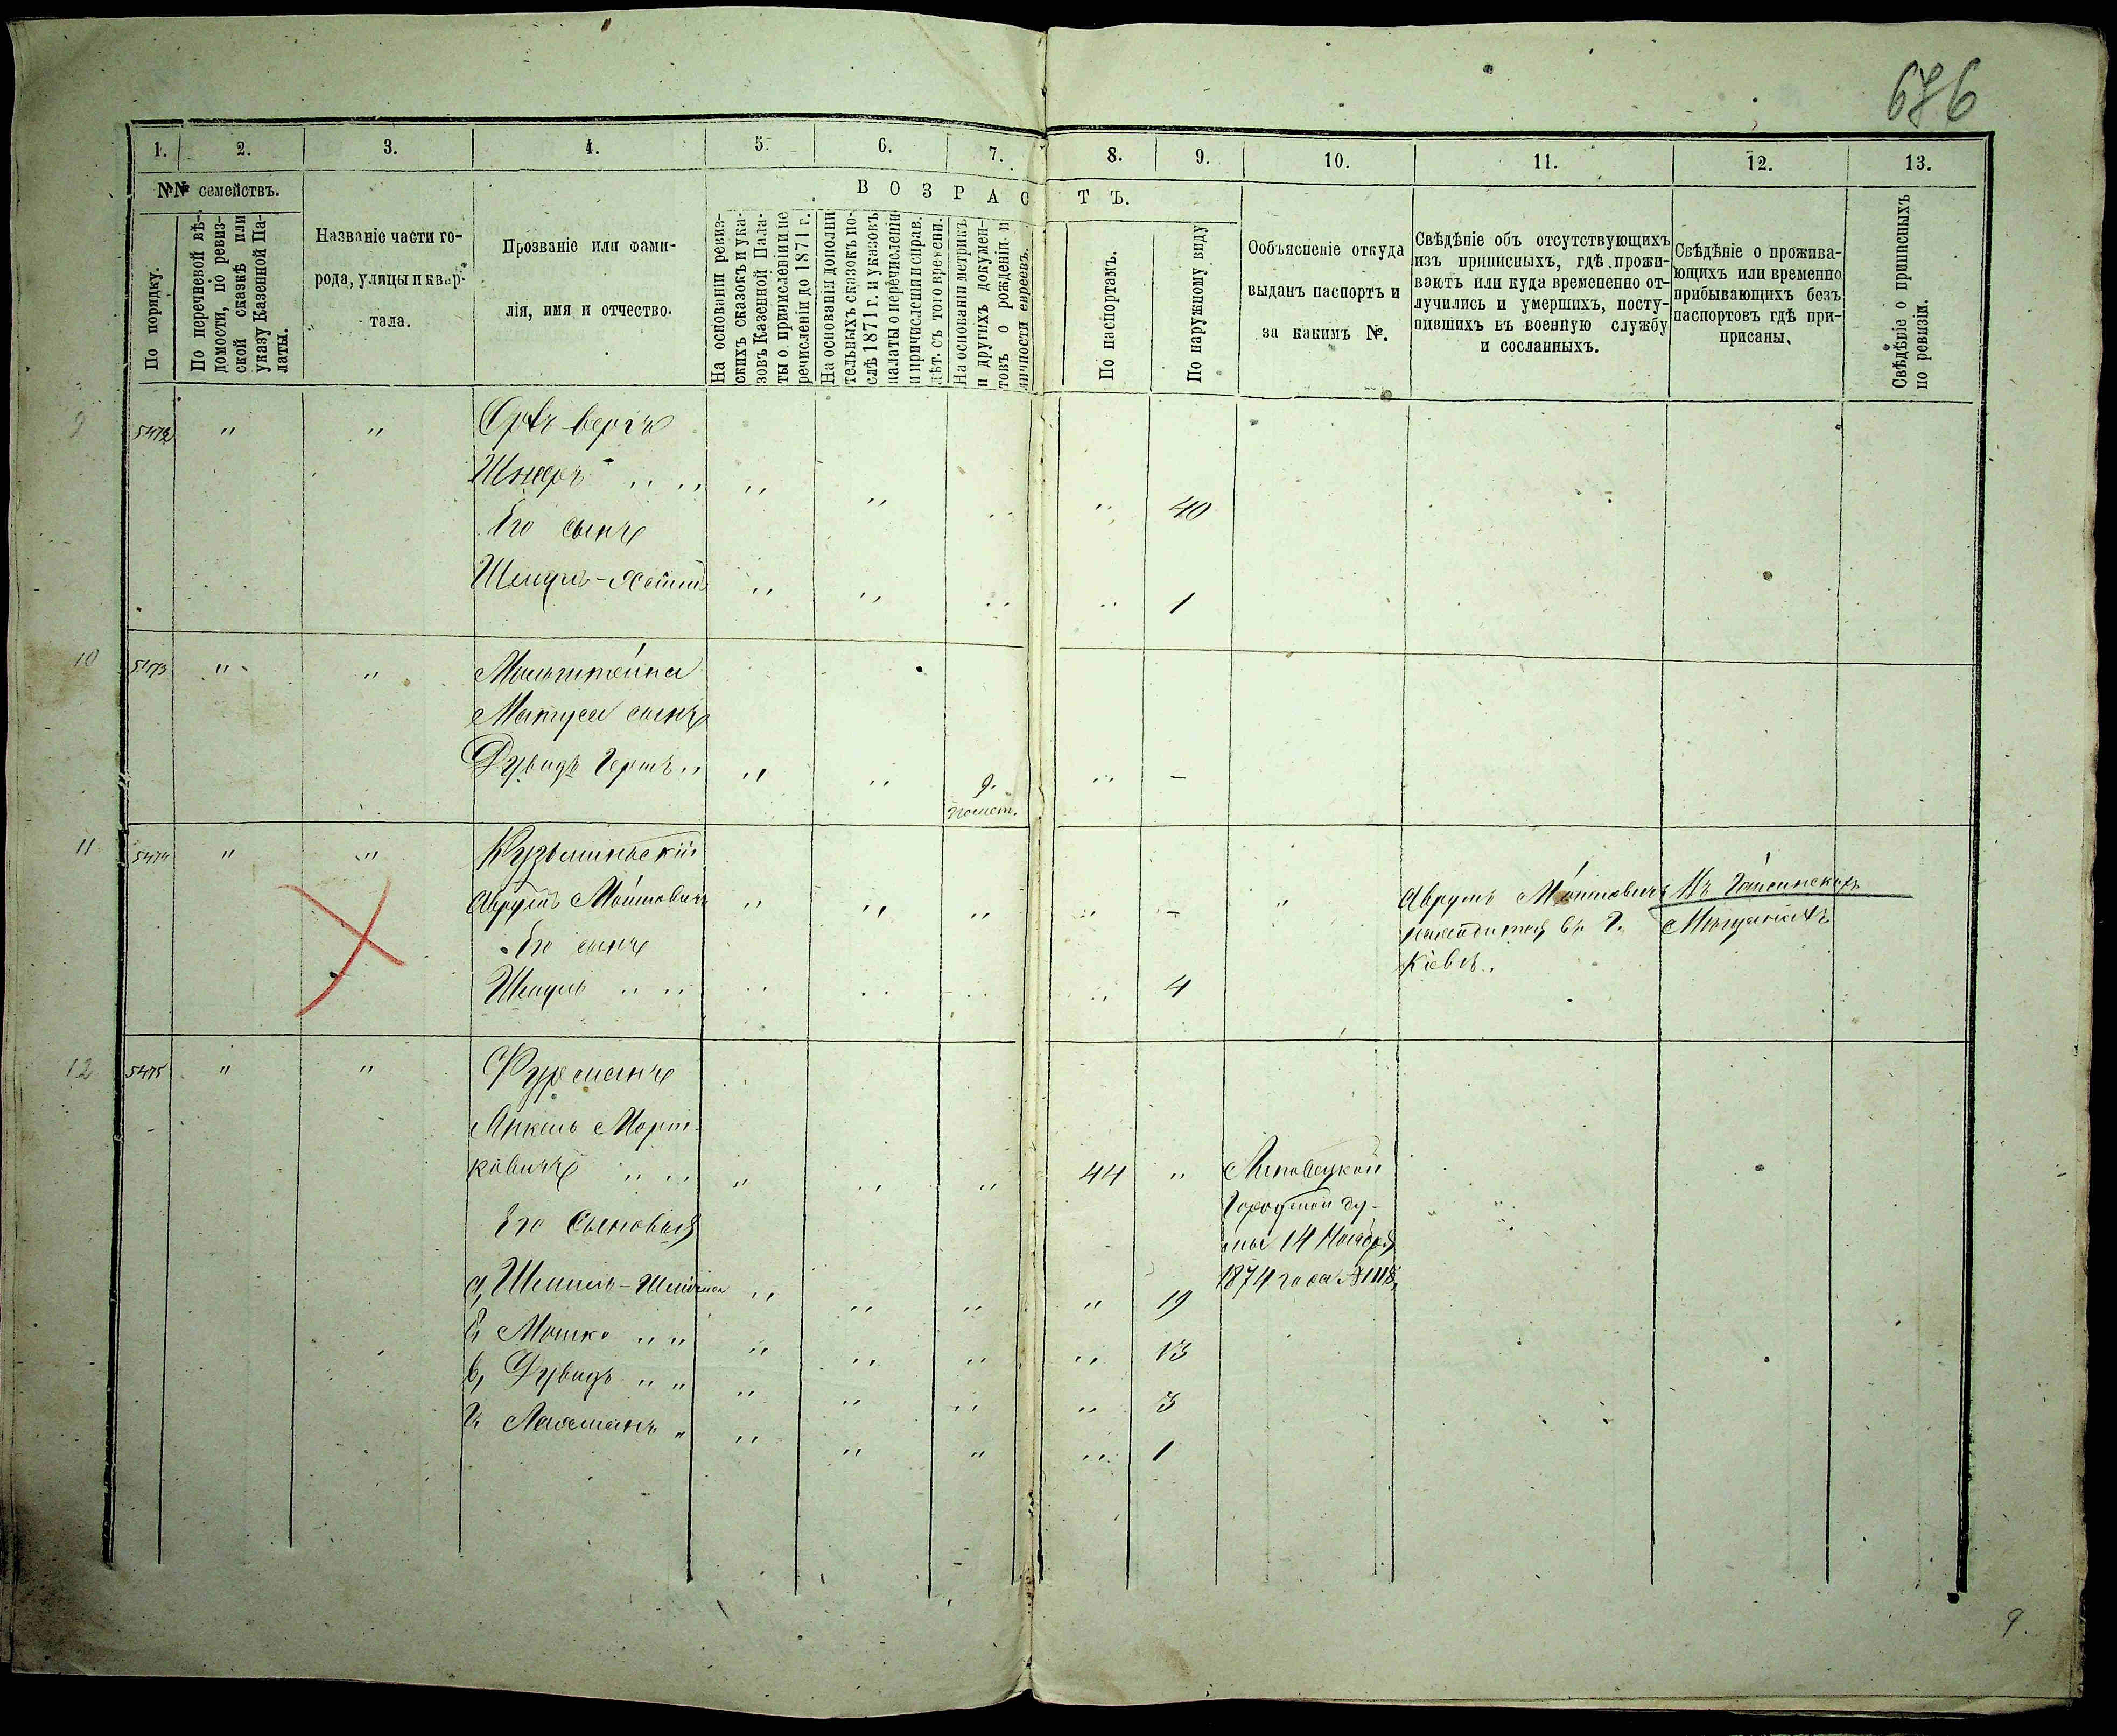 686
1. 2. 3. 4. 5. 6. 7. 8. 9. 10. 11. 12. 13.
№№ семействъ.
По порядку.
По перечневой вѣ-
домости, по ревиз-
ской сказкѣ или
указу Казенной Па-
латы.
Названіе части го-
рода, улицы и квар-
тала.
Прозваніе или Фами-
лія, имя и отчество.
ВОЗРАСТЪ.
На основаніи ревиз-
скихъ сказокъ и ука-
зовъ Казенной Пала-
ты о причисленіи и пе
речисленіи до 1871 г.
На основаніи дополни
тельныхъ сказокъ по-
слѣ 1871 г. и указовъ
палаты о перечисленіи
и причисленіи и справ.
лѣт. съ того времени.
На основаніи метрикъ
и другихъ докумен-
товъ о рожденіи и
личности евреевъ.
По паспортамъ.
По наружному виду
Ообъясненіе откуда
выданъ паспортъ и
за какимъ №.
Свѣдѣніе объ отсутствующихъ
изъ приписныхъ, гдѣ прожи-
ваютъ или куда временно от-
лучились и умершихъ, посту-
пившихъ въ военную службу
и сосланныхъ.
Свѣдѣніе о прожива-
ющихъ или временно
прибывающихъ безъ
паспортовъ гдѣ при-
приcаны.
Свѣдѣніе о приписныхъ
по ревизіи.
9 5472 " "
Шнеръ " " " " " " 40
Его сынъ
" " " " 1
10 5473 " "
Мильштейна
Матуса сынъ
Дувидъ Гершъ " " " 9. " –
11 5474 " " Кузьминскій
Аврумъ Мошковичъ " " " " – " Аврумъ Мошковичъ
Его сынъ находится въ г. Мѣщанахъ
Кіевѣ.
" " " " " 4
12 5475 " " Фурманъ
Янкель Морт-
ковичъ " " " " " 44 " Липовецкой
Его сыновья Городской ду-
мы 14 Ноября
1874 года №1118,
а, " " " " 19
б, Мошко " " " " " " 13
в, Дувидъ " " " " " " 3
г, " " " " " 1
9